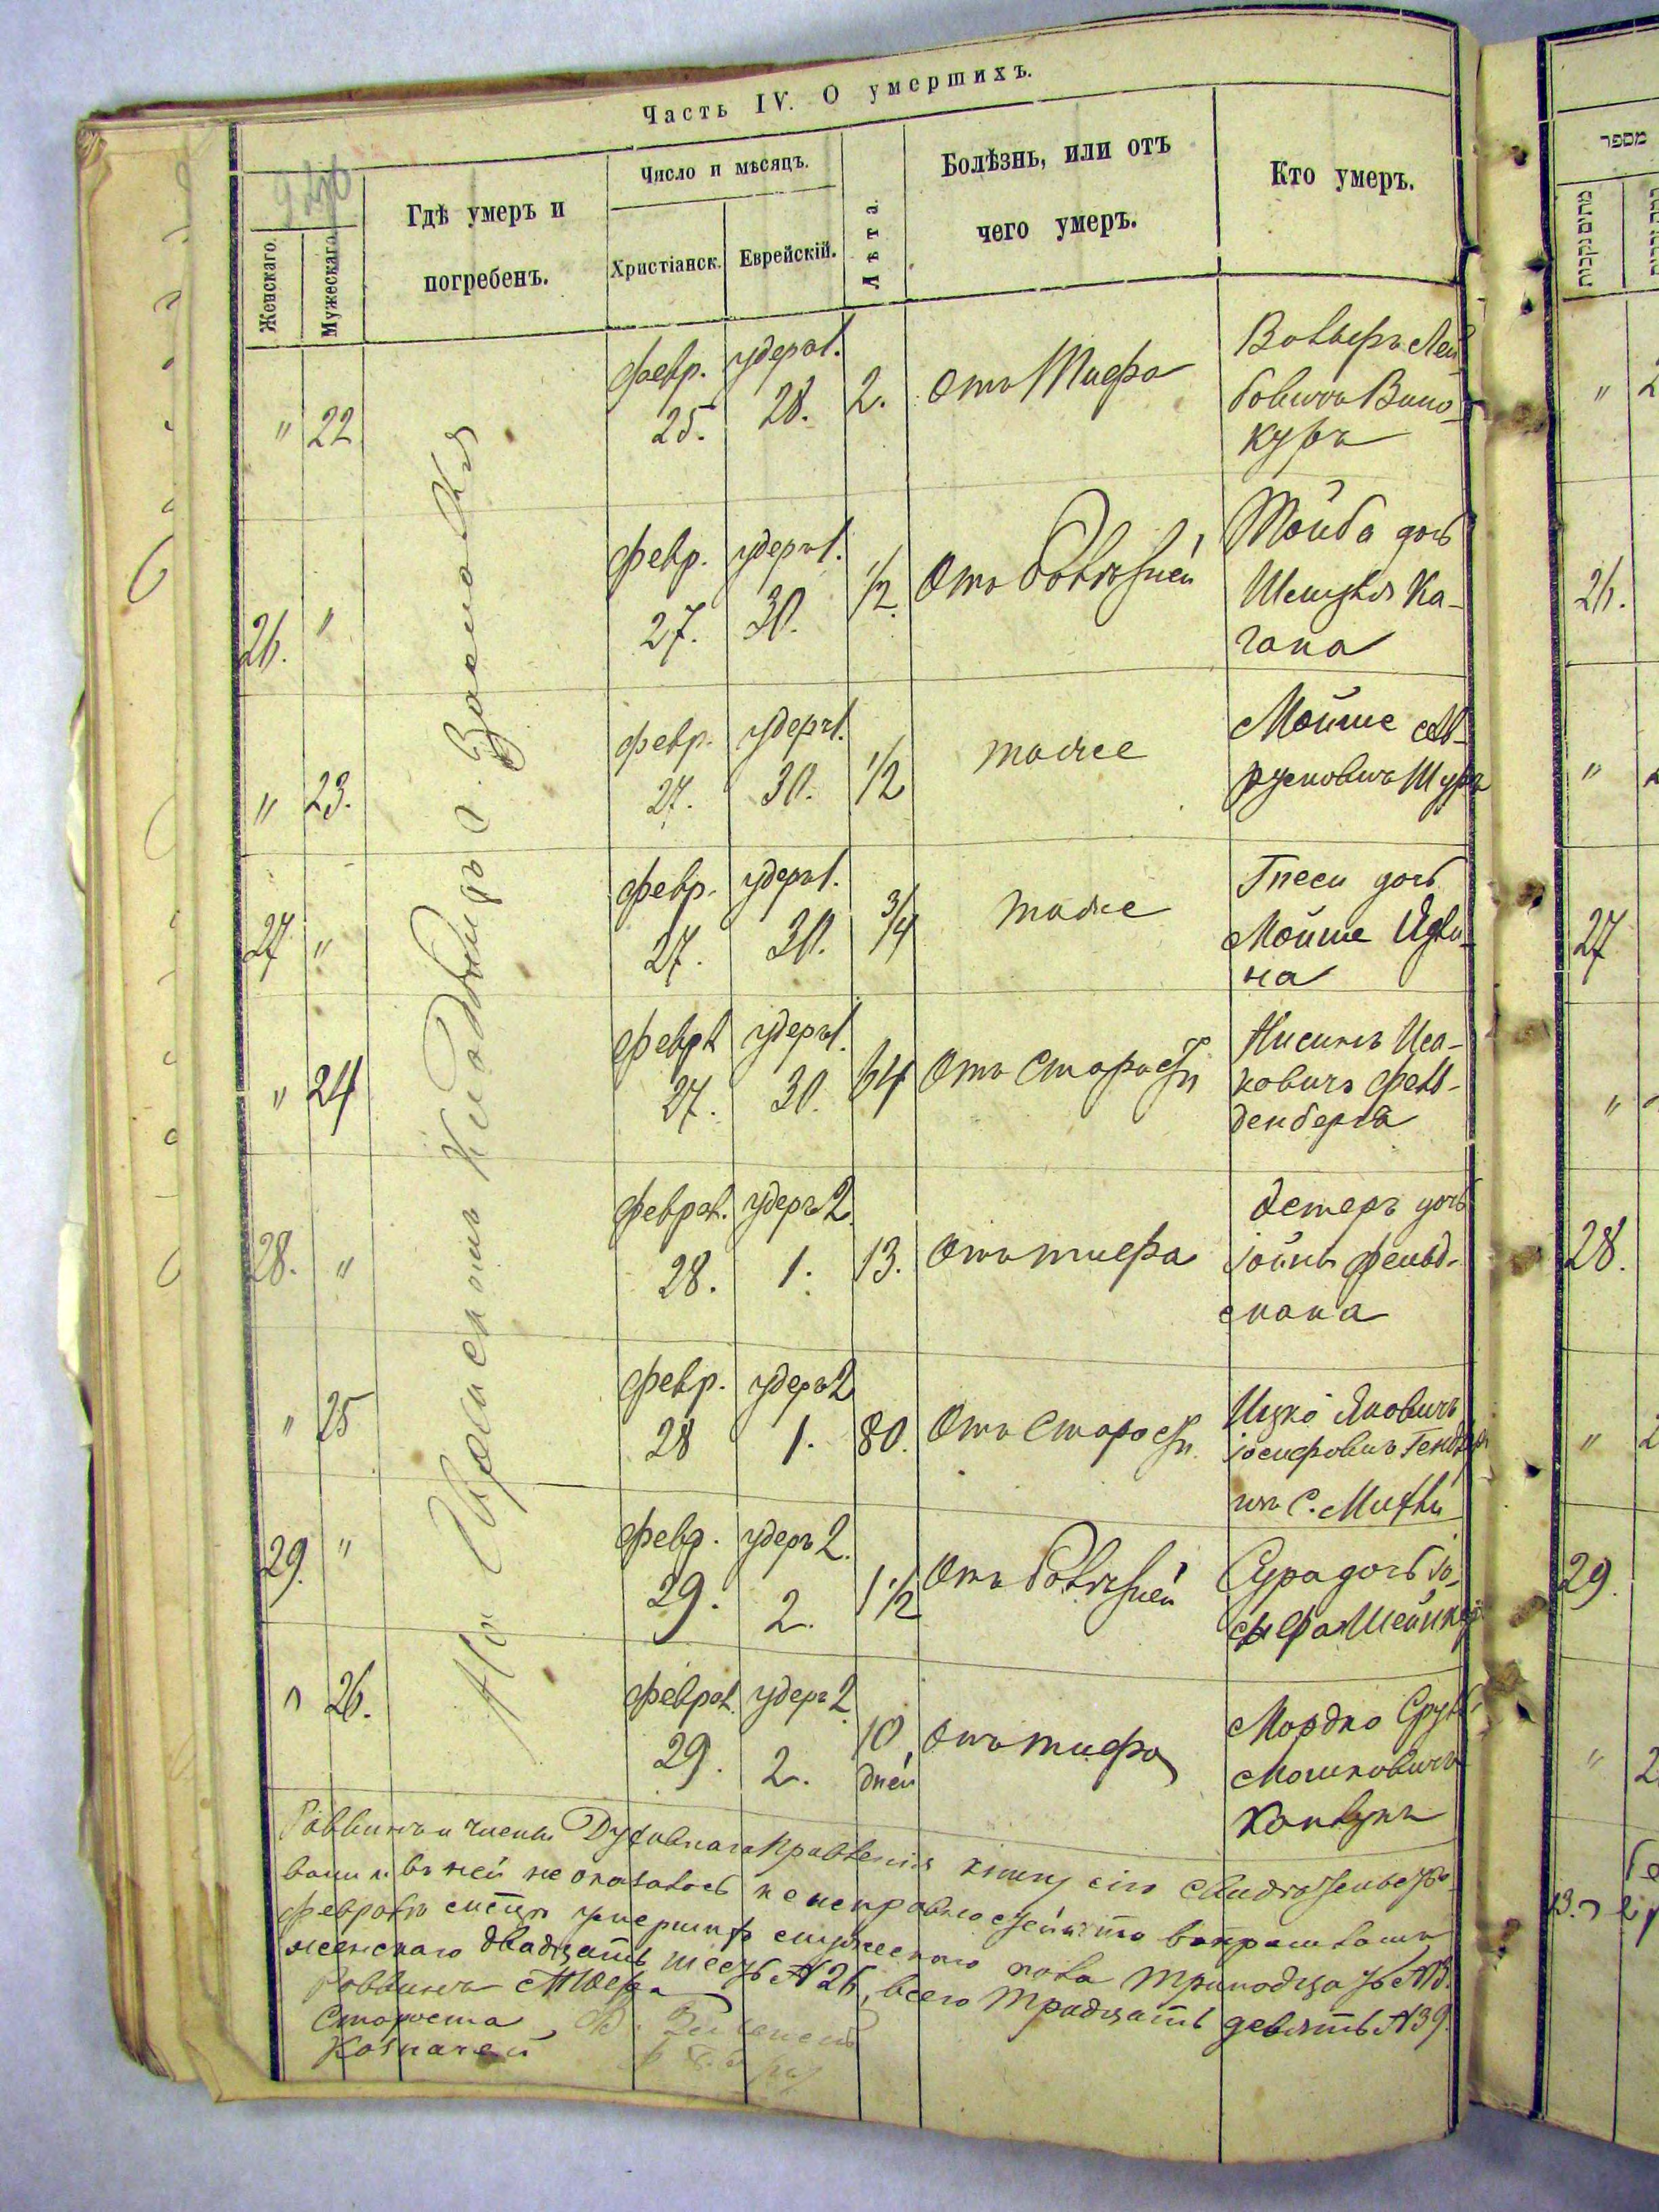 Часть IV. О умершихъ.
Женскаго.
Мужескаго.
Гдѣ умеръ и
погребенъ.
Число и мѣсяцъ.
Христіанск.
Еврейскій.
Лѣта.
Болѣзнь, или отъ
чего умеръ.
Кто умеръ.
На Еврейскомъ Кладбищѣ
" 22
февр.
25.
удеръ 1.
28.
2.
отъ Тифа
Вольфъ Лей-
бовичъ Вино-
куръ
26. "
февр.
27.
удеръ 1.
30.
1/2.
отъ болѣзней
Тойба дочь
Ка-
гана
" 23.
февр.
27.
удеръ 1.
30.
1/2
тоже
Мойше Ав-
румовичъ Шуръ
27 "
февр.
27.
удеръ 1.
30.
3/4
тоже
Гнеси дочь
Мойше
на
" 24
феврл
27.
удеръ 1.
30.
64
отъ старости
Нисинъ Иса-
ковичъ Фель-
денберга
28. "
феврал.
28.
удеръ 2.
1.
13.
отъ тифа
Эстеръ дочь
Іойнъ Фельд-
мана
" 25
февр.
28
удеръ 2
1.
80.
отъ старости.
Ицко Яновичъ
Іосифовичъ
изъ С.
29. "
февр.
29.
удеръ 2.
2.
1 1/2
отъ болѣзней
Сура дочь Іо-
сифа
" 26.
феврал.
29.
удеръ 2.
2.
10
дней
отъ тифа
Мордко Сруль
Мошковичъ
Раввинъ и члены Духовнаго Правленія книгу сію свидѣтельство-
вали и въ ней не оказалось неисправностей, что въ прошломъ
Февралѣ мѣсяцѣ умершихъ мужескаго пола тринадцать №13.
женскаго двадцать шесть №26, всего тридцать девять №39.
Раввинъ
Староста
Казначей
מספר
מתים נקבות
"
26.
"
27
"
28.
"
29.
"